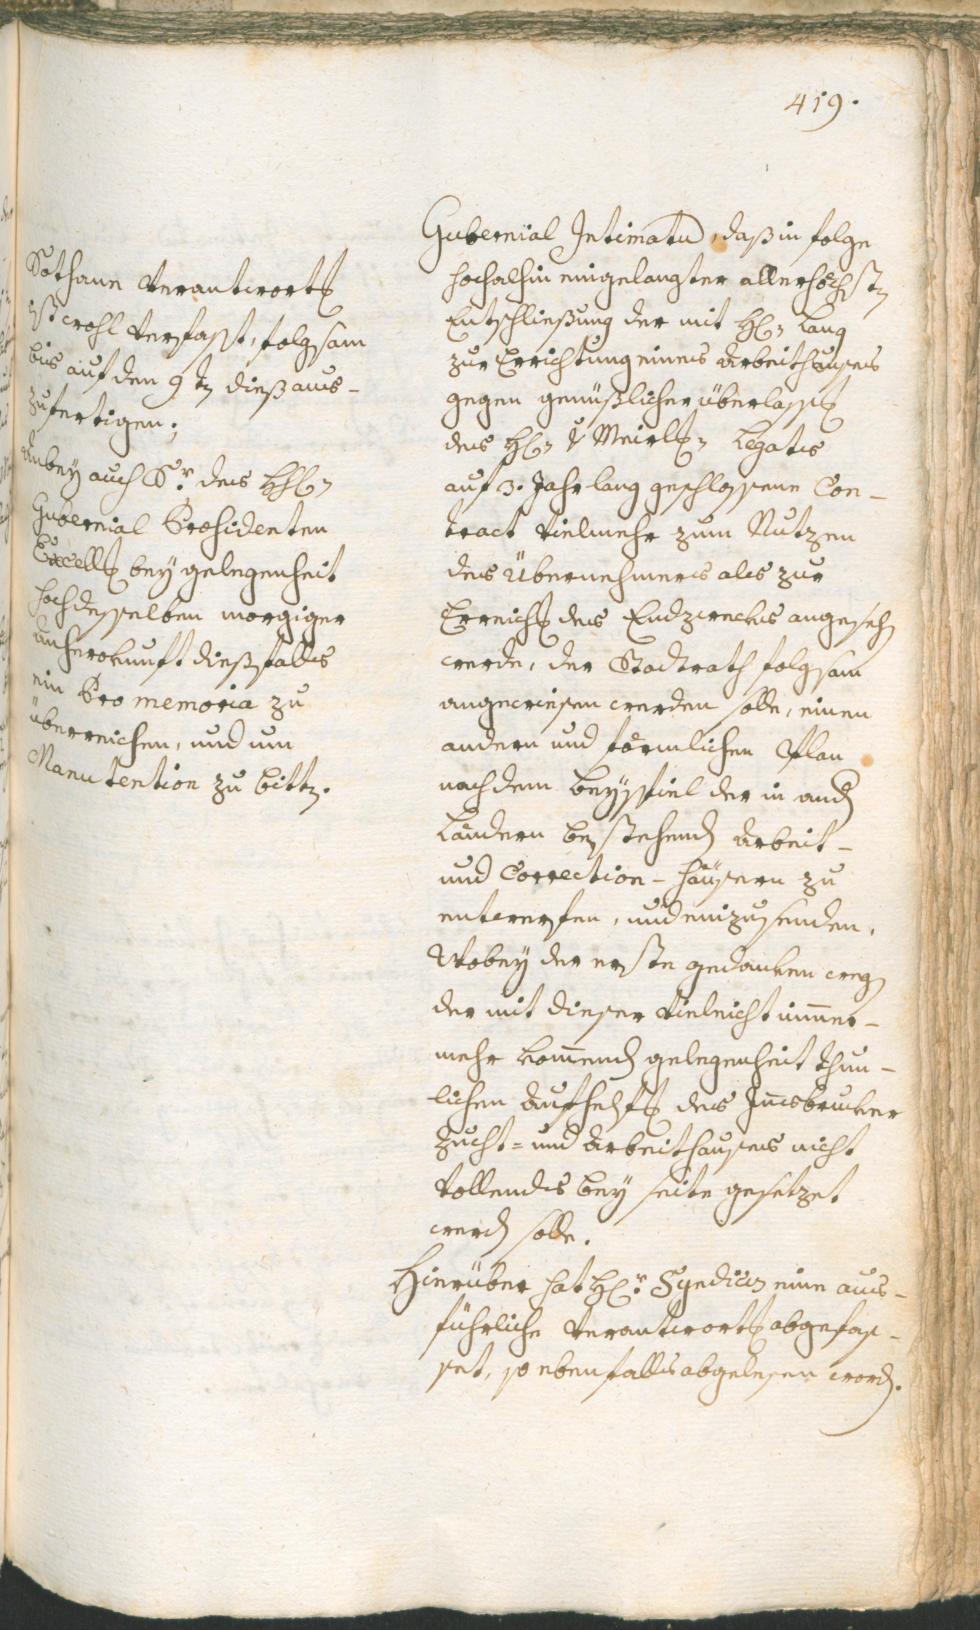 419.
Sothane Verantworth
ist wohl verfasst, folgsam
bis auf den 9 tn dieß aus-
zufertigen;
Anbey auch Sr. des H[errn]
Gubernial Præsidenten
Excell bey gelegenheit
hochdesselben morgiger
anherokunft dießfalls
ein Pro memoria zu
überreichen, und um
Manutention zu bittn.
Gubernial Intimatu, daß in folge
hochalhin eingelangter allerhöchstn
Entschließung der mit H: Lang
zur Errichtung eines Arbeithauses
gegen genüßlicher überlass
des H: v Meirl Legats
auf 3. Jahr lang geschlossene Con-
tract vielmehr zum Nutzen
des Übernehmers als zur
Erreich des Endzweckes angeseh
werde, der Stadtrath folgsam
angewiesen werden solle, einen
andern und förmlichen Plan
nach dem Beyspiel der in and
Ländern bestehend Arbeit-
und Correction-häusern zu
entwerfen, und einzusenden,
Wobey der erste gedanken weg
der mit dieser vieleicht nimmer-
mehr kommend gelegenheit thun-
lichen Aufhelf des Innsbrucker
Zucht- und Arbeithauses nicht
vollends bey seite gesetzet
werd solle.
Hierüber hat H: Syndicus eine aus-
führliche Verantwort abgefas-
set, so ebenfalls abgelesen word.